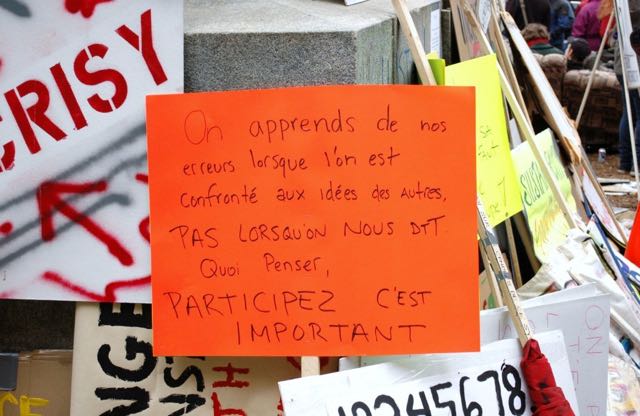 CRISY
On apprends de nos
erreurs lorsque l'on est
confronté aux idées des autres,
PAS LORSQU'ON NOUS DIT
Quoi Penser,
PARTICIPEZ C'EST
IMPORTANT
NGE
12345678